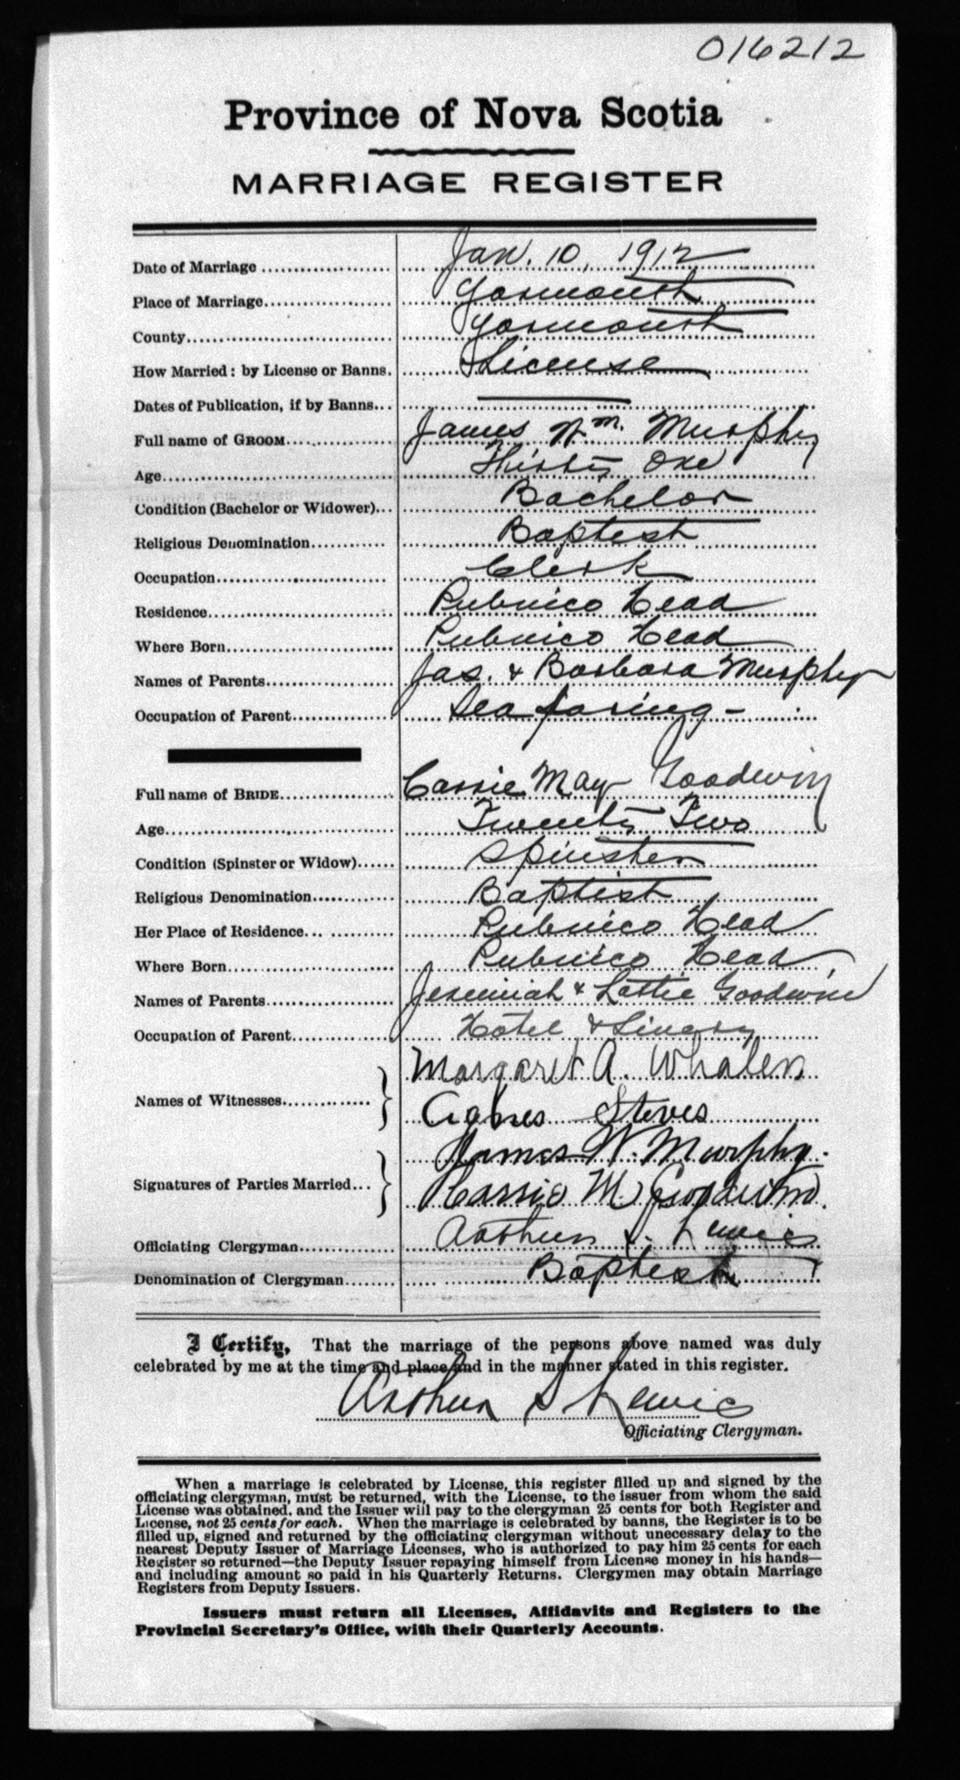 016212
Province of Nova Scotia
MARRIAGE REGISTER
Date of Marriage Jan. 10, 1912
Place of Marriage Yarmouth
County Yarmouth
How Married: by License or Banns. License
Dates of Publication, if by Banns
Full name of GROOM James Wm. Murphy
Age Thirty One
Condition (Bachelor or Widower) Bachelor
Religious Denomination Baptist
Occupation Clerk
Residence Pubnico Head
Where Born Pubnico Head
Names of Parents Jas. & Barbara Murphy
Occupation of Parent Sea faring -
Full name of BRIDE Cassie May Goodwin
Age Twenty Two
Condition (Spinster or Widow) Spinster
Religious Denomination Baptist
Her Place of Residence Pubnico Head
Where Born Pubnico Head
Names of Parents Jeremiah & Lottie Goodwin
Occupation of Parent Hotel & Livery
Margaret A. Whalen
Names of Witnesses
Agnes Steves
James W. Murphy.
Signatures of Parties Married
Cassie M Goodwin.
Officiating Clergyman Arthur S. Lewis
Denomination of Clergyman Baptist
I Certify, That the marriage of the persons above named was duly
celebrated by me at the time and place and in the manner stated in this register.
Arthur S Lewis
Officiating Clergyman.
When a marriage is celebrated by License, this register filled up and signed by the
officiating clergyman, must be returned, with the License, to the issuer from whom the said
License was obtained, and the Issuer will pay to the clergyman 25 cents for both Register and
License, not 25 cents for each. When the marriage is celebrated by banns, the Register is to be
filled up, signed and returned by the officiating clergyman without unecessary delay to the
nearest Deputy Issuer of Marriage Licenses, who is authorized to pay him 25 cents for each
Register so returned—the Deputy Issuer repaying himself from License money in his hands—
and including amount so paid in his Quarterly Returns. Clergymen may obtain Marriage
Registers from Deputy Issuers.
Issuers must return all Licenses, Affidavits and Registers to the
Provincial Secretary's Office, with their Quarterly Accounts.